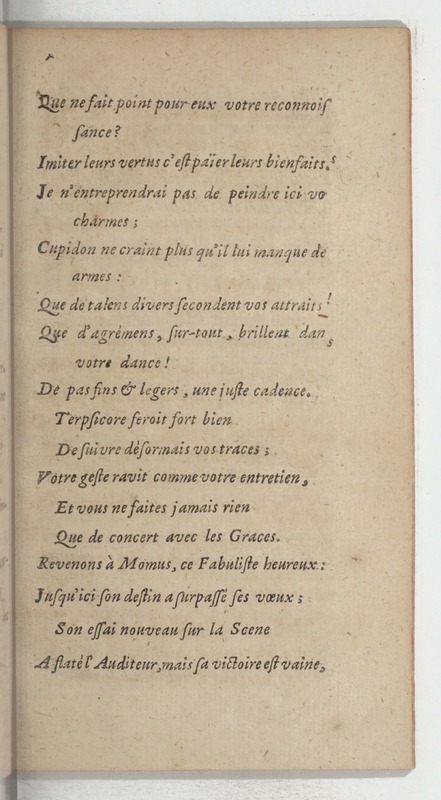 Que ne fait point pour eux votre reconnoiſ
ſance?
Imiter leurs vertus c'eſt païer leurs bienfaits.
Je n'entreprendrai pas de peindre ici vos
charmes;
Cupidon ne craint plus qu'il lui manque de
armes:
Que de talens divers ſecondent vos attraits!
Que d'agrémens, ſur-tout, brillent dans
votre dance!
De pas fins & legers, une juſte cadence.
Terpſicore feroit fort bien
De ſuivre déſormais vos traces;
Votre geſte ravit comme votre entretien,
Et vous ne faites jamais rien
Que de concert avec les Graces.
Revenons à Momus, ce Fabuliſte heureux:
Juſqu'ici ſon deſtin a ſurpaſſé ſes vœux;
Son eſſai nouveau ſur la Scene
A flaté l'Auditeur, mais ſa victoire eſt vaine,